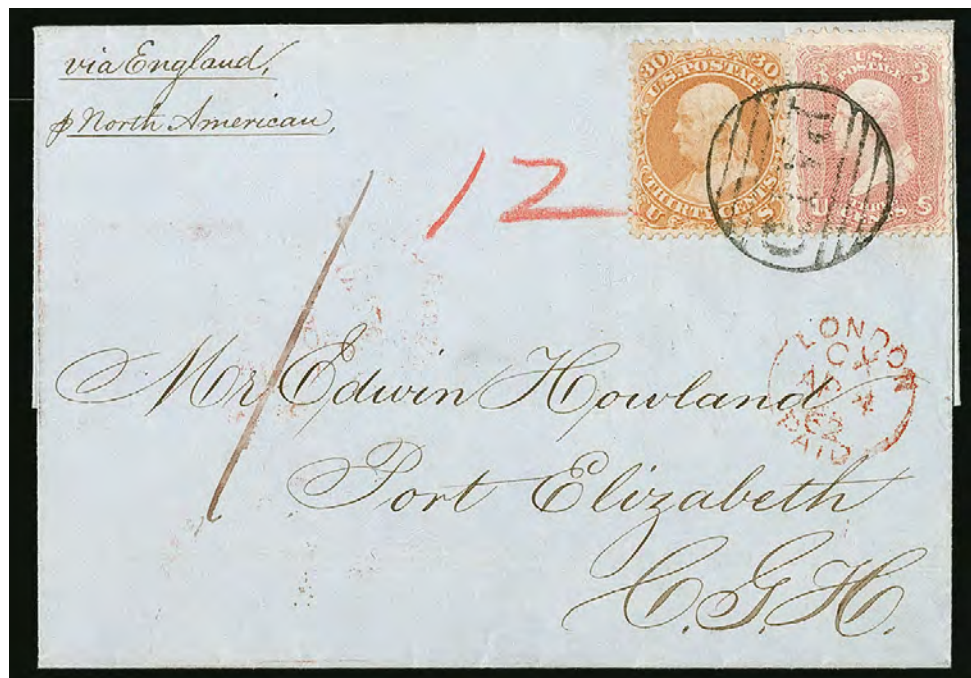 via England,
p North American,
30 30
U.S. POSTAGE
THIRTY CENTS
U S
U.S.
POSTAGE
3 3
CENTS
U S
12
LONDON
PAID
Mr Edwin Howland
Port Elizabeth
C.G.H.